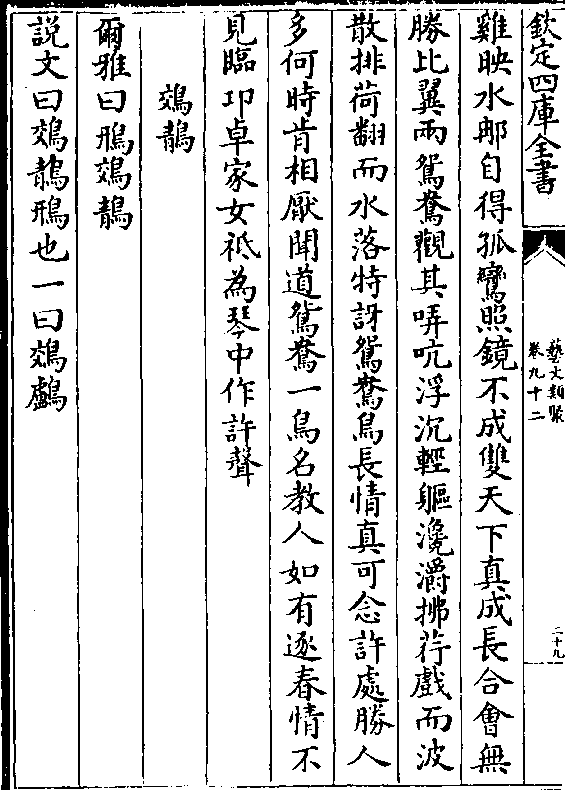 欽定四庫全書
藝文類聚
卷九十二
二十九
雞映水那自得孤鸞照鏡不成雙天下真成長合會無
勝比翼兩鴛鴦觀其哢吭浮沉輕軀瀺灂拂荇戲而波
散排荷翻而水落特訝鴛鴦鳥長情真可念許處勝人
多何時肯相厭聞道鴛鴦一鳥名教人如有逐春情不
見臨卭卓家女秪為琴中作許聲
鵁鶄
爾雅曰鳽鵁鶄
説文曰鵁鶄鳽也一曰鵁鸕